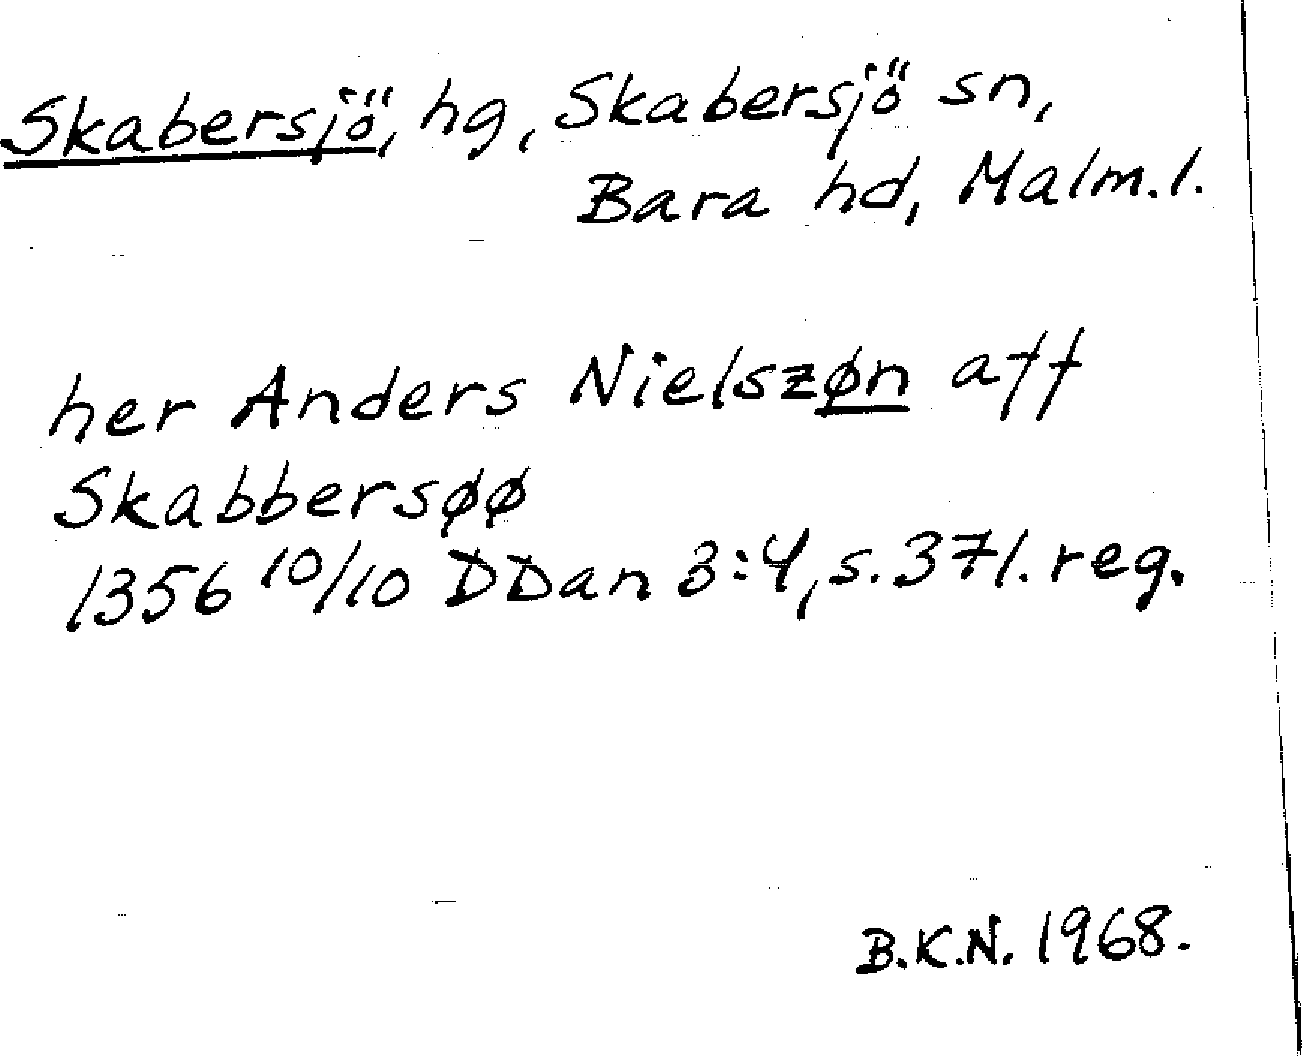 Skabersjö, hg, Skabersjö sn,
Bara hd, Malm.l.
her Anders Nielszøn aff
Skabbersøø
1356 10/10 DDan 3:4, s. 371. reg.
B.K.N. 1968.